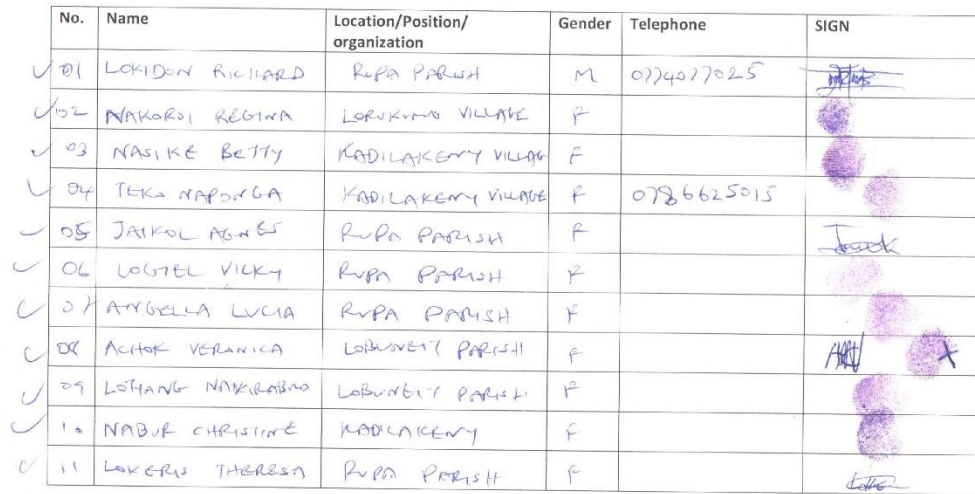 No. Name Location/Position/ Gender Telephone SIGN
organization
01 LOKIDON RICHARD RUPA PARISH M 0774077025
02 NAKORDI REGINA LORUKUMO VILLAGE F
03 NASIKE BETTY KADILAKENY VILLAG F
04 TEKO NAPONGA KADILAKENY VILLAGE F 0786625015
05 JAIKOL AGNES RUPA PARISH F
06 VICKY RUPA PARISH F
07 ANGELLA LUCIA RUPA PARISH F
08 ACHOK VERANICA LOBUNEIT PARISH F
09 LOTIANG LOBUNEIT PARISH F
10 NABUR CHRISTINE KADILAKENY F
11 LOKERIS THERESA RUPA PARISH F